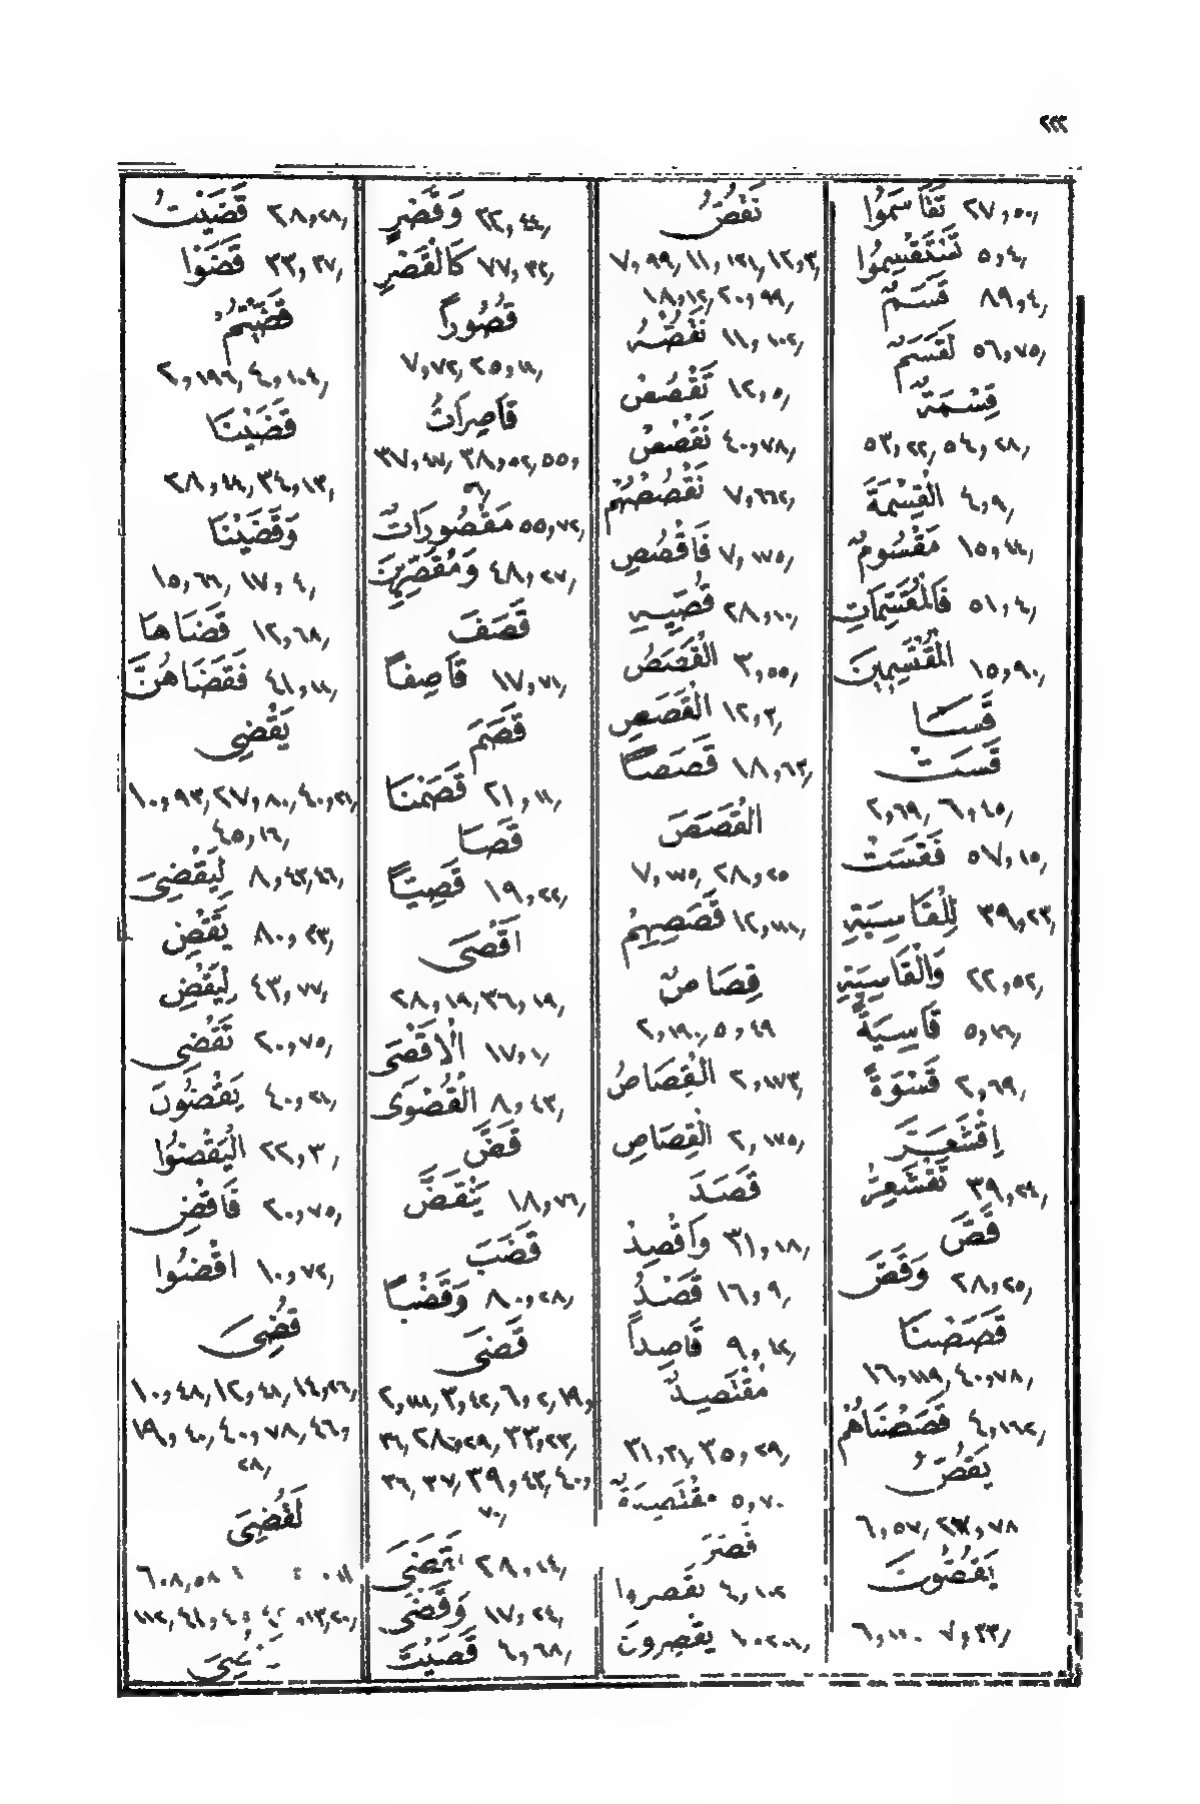 ٢٢٢
تَقَاسَمُوا ٢٧,٥٠
تَسْتَقْسِمُوا ٥,٤
قَسَمٌ ٨٩,٤
لَقَسَمٌ ٥٦,٧٥
قِسْمَةٌ
٥٣,٢٢, ٥٤,٢٨
الْقِسْمَةَ ٤,٩
مَقْسُومٌ ١٥,٤٤
فَالْمُقَسِّمَاتِ ٥١,٤
الْمُقْتَسِمِينَ ١٥,٩٠
قَسَا
قَسَتْ
٢,٦٩, ٦,٤٥
فَقَسَتْ ٥٧,١٥
لِلْقَاسِيَةِ ٣٩,٢٣
وَالْقَاسِيَةِ ٢٢,٥٢
قَاسِيَةً ٥,١٦
قَسْوَةً ٢,٦٩
اِقْشَعَرَّ
تَقْشَعِرُّ ٣٩,٢٤
قَصَّ
وَقَصَّ ٢٨,٢٥
قَصَصْنَا
١٦,١١٩, ٤٠,٧٨
قَصَصْنَاهُمْ ٤,١٦٢
يَقُصُّ
٦,٥٧, ٢٧,٧٨
يَقُصُّونَ
٦,١٣٠ ٧,٣٣
نَقُصُّ
٧,٩٩, ١١,١٢١, ١٢,٣
١٨,١٢, ٢٠,٩٩
نَقُصُّهُ ١١,١٠٢
تَقْصُصْ ١٢,٥
نَقْصُصْ ٤٠,٧٨
نَقْصُصْهُمْ ٧,٦٦٢
فَاقْصُصِ ٧,١٧٥
قُصِّيهِ ٢٨,١٠
الْقَصَصُ ٣,٥٥
الْقَصَصِ ١٢,٣
قَصَصًا ١٨,٦٣
الْقَصَصَ
٧,١٧٥, ٢٨,٢٥
قَصَصِهِمْ ١٢,١١١
قِصَاصٌ
٢,١٩٠, ٥,٤٩
الْقِصَاصُ ٢,١٧٣
الْقِصَاصِ ٢,١٧٥
قَصَدَ
وَاقْصِدْ ٣١,١٨
قَصْدُ ١٦,٩
قَاصِداً ٩,٤٢
مُقْتَصِدٌ
٣١,٣١, ٣٥,٢٩
مُقْتَصِدَةٌ ٥,٧٠
قَصَرَ
تقصروا ٤,١٠٢
يُقْصِرُونَ
وَقَصْرٍ ٢٢,٤٤
كَالْقَصْرِ ٧٧,٣٢
قُصُوراً
٧,٧٢, ٢٥,١١
قَاصِرَاتُ
٣٧,٤٧, ٣٨,٥٢, ٥٥,
٥٦
مَقْصُورَاتٌ ٥٥,٧٢
وَمُقَصِّرِينَ ٤٨,٢٧
قَصَفَ
قَاصِفاً ١٧,٧١
قَصَمَ
قَصَمْنَا ٢١,١١
قَصَا
قَصِيّاً ١٩,٢٢
اَقْصَى
٢٨,١٩, ٣٦,١٩
الْاَقْصَى ١٧,١
الْقُصْوَى ٨,٤٣
قَضَّ
يَنْقَضَّ ١٨,٧٦
قَضَبَ
وَقَضْباً ٨٠,٢٨
قَضَى
٢,١١١, ٣,٤٢, ٦,٢, ١٩,
٣٦, ٢٨,٢٩, ٣٣,٢٣
٣٦, ٣٧, ٣٩,٤٣, ٤٠,
٧٠
قَضَى ٢٨,١٤
وَقَضَى ١٧,٢٤
قَضَيْتَ ٤,٦٨
قَضَيْتُ ٢٨,٢٨
قَضَوْا ٣٣,٣٧
قَضَيْتُمْ
٢,١٩٦, ٤,١٠٤
قَضَيْنَا
٢٨,٤٤, ٣٤,١٣
وَقَضَيْنَا
١٥,٦٦, ١٧,٤
قَضَاهَا ١٢,٦٨
فَقَضَاهُنَّ ٤١,١١
يَقْضِى
١٠,٩٣, ٢٧,٨٠, ٤٠,٢١
٤٥,١٦
لِيَقْضِيَ ٨,٤٣,٤٦
يَقْضِ ٨٠,٢٣
لِيَقْضِ ٤٣,٧٧
تَقْضِى ٢٠,٧٥
يَقْضُونَ ٤٠,٢١
الْيَقْضُوا ٢٢,٣
فَاقْضِ ٢٠,٧٥
اقْضُوا ١٠,٧٢
قُضِىَ
١٠,٤٨, ١٢,٤٨, ١٤,٢٦
١٩, ٤٠, ٤٠,٧٨, ٤٦,
٢٨
لَقُضِىَ